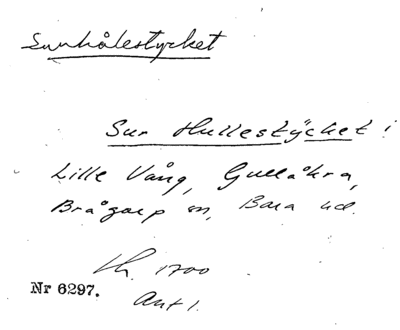 Surhålestycket
Sur Hullestÿcket i
Lille Vång, Gullåkra,
Brågarp sn, Bara hd.
Lh. 1700
Nr 6297.
Ant 1.